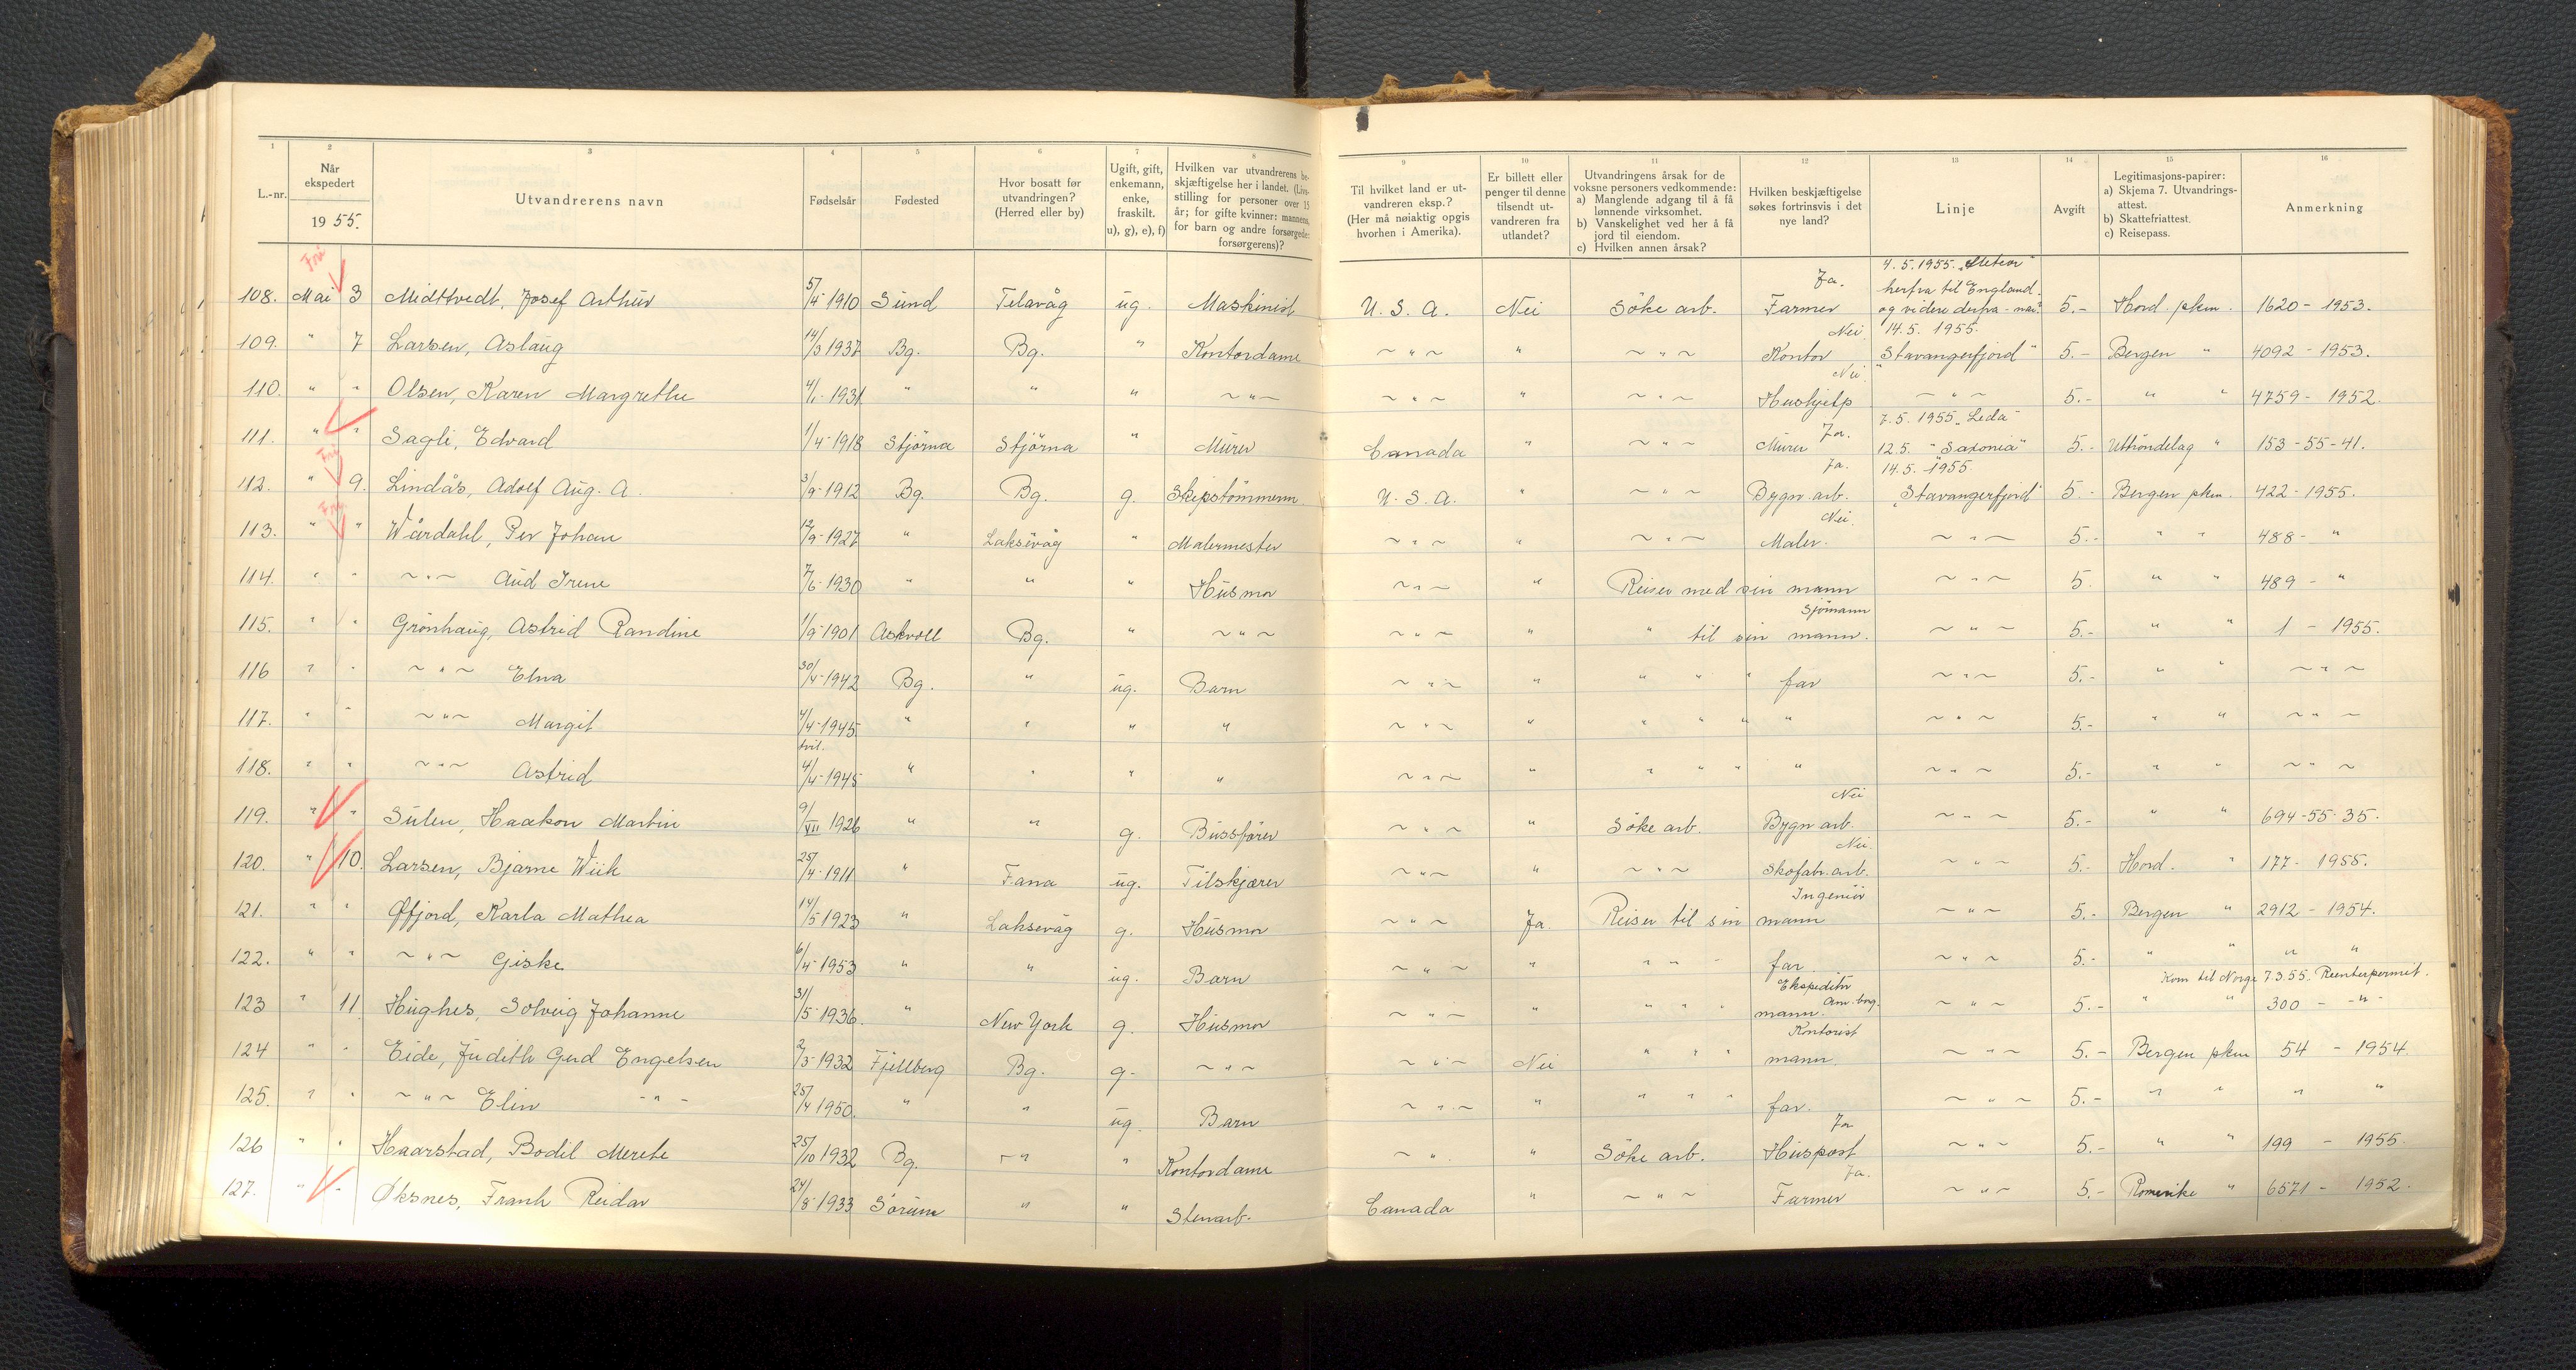 1 2 3 4 5 6 7 8 9 10 11 12 13 14 15 16
L.-nr. | Når ekspedert 1955. | Utvandrerens navn | Fødselsår | Fødested | Hvor bosatt før utvandringen? (Herred eller by) | Ugift, gift, enkemann, enke, fraskilt. u), g), e), f) | Hvilken var utvandrerens beskjæftigelse her i landet. (Livsstilling for personer over 15 år; for gifte kvinner: mannens, for barn og andre forsørgede: forsørgerens)? | Til hvilket land er utvandreren eksp.? (Her må nøiaktig opgis hvorhen i Amerika). | Er billett eller penger til denne tilsendt utvandreren fra utlandet? | Utvandringens årsak for de voksne personers vedkommende: a) Manglende adgang til å få lønnende virksomhet. b) Vanskelighet ved her å få jord til eiendom. c) Hvilken annen årsak? | Hvilken beskjæftigelse søkes fortrinsvis i det nye land? | Linje | Avgift | Legitimasjons-papirer: a) Skjema 7. Utvandringsattest. b) Skattefriattest. c) Reisepass. | Anmerkning
Fri
108. Mai 3 Midttvedt, Josef Arthur 5/4 1910 Sund Telavåg ug. Maskinist U. S. A. Nei Söke arb. Ja. Farmer 4.5.1955. "Meteor" herfra til England. og videre derfra - mai? 5.- Hord. pkm. 1620 - 1953.
109. " 7 Larsen, Aslaug 14/3 1937 Bg. Bg. " Kontordame ~ " ~ " ~ " ~ Nei Kontor 14.5. 1955. "Stavangerfjord" 5.- Bergen " 4092 - 1953.
110. " " Olsen, Karen Margrethe 4/1 1931 " " " ~ " ~ ~ " ~ " ~ " ~ Nei. Hushjelp ~ " ~ 5.- " " 4759 - 1952.
111. " " Sagli, Edvard 1/4 1918 Stjörna Stjörna " Murer Canada " ~ " ~ Murer Ja. 7.5.1955 "Leda" 12.5. "Saxonia" 5.- Uttröndelag " 153-55-41.
Fri
112. " 9. Lindås, Adolf Aug. A. 3/9 1912 Bg. Bg. g. Skipstömmerm. U. S. A. " ~ " ~ Ja. Bygn. arb. 14.5. 1955. "Stavangerfjord" 5.- Bergen pkm. 422 - 1955.
Fri
113. " " Wårdahl, Per Johan 12/9 1927 " Laksevåg " Malermester ~ " ~ " ~ " ~ Nei. Maler. ~ " ~ 5.- " " 488 - "
114. " " ~ " ~ Aud Irene 7/6 1930 " " " Husmor ~ " ~ " Reiser med sin mann ~ " ~ 5. " " 489 - "
115. " " Grönhaug, Astrid Randine 1/9 1901 Askvoll Bg. " ~ " ~ ~ " ~ " " til sin mann. Sjömann ~ " ~ 5.- " " 1 - 1955.
116 " " ~ " ~ Elna 30/4 1942 Bg. " ug. Barn ~ " ~ " " " " far ~ " ~ 5.- " " ~ " ~
117. " " ~ " ~ Margit 4/4 1945 " " " " ~ " ~ " " " " " ~ " ~ 5.- " " ~ " ~
tvil.
118. " " ~ " ~ Astrid 4/4 1945 " " " " ~ " ~ " " " " " ~ " ~ 5.- " " ~ " ~
119. " " Sulen, Haakon Martin 9/VII 1926 " " g. Bussförer ~ " ~ " Söke arb. Nei Bygn. arb. ~ " ~ 5.- " " 694-55-35.
120. " 10. Larsen, Bjarne Wiik 25/4 1911 " Fana ug. Tilskjærer ~ " ~ " ~ " ~ Nei. Skofabr. arb. ~ " ~ 5.- Hord. " 177 - 1955.
121. " " Øfjord, Karla Mathea 14/5 1923 " Laksevåg g. Husmor ~ " ~ Ja. Reiser til sin mann Ingeniör ~ " ~ 5.- Bergen " 2912 - 1954.
122. " " ~ " ~ Giske 6/4 1953 " " ug. Barn ~ " ~ " " " " far. ~ " ~ 5.- " " " "
123 " 11 Hughes, Solveig Johanne 31/5 1936. " New York g. Husmor ~ " ~ " " " " Ekspeditör Am. borg. mann. ~ " ~ 5.- Kom til Norge 7.3.55. Reenterpermit. " " 300 - "
124 " " Eide, Judith Gud Engelsen 2/3 1932 Fjellberg Bg. g. ~ " ~ ~ " ~ Nei " " " Kontorist mann. ~ " ~ 5.- Bergen pkm 54 - 1954.
125. " " ~ " ~ Elin - " - 25/4 1950. " " ug. Barn ~ " ~ " " " " far. ~ " ~ 5.- " " " "
126 " " Haarstad, Bodil Merete 25/10 1932 Bg. " " Kontordame ~ " " Söke arb. Ja Huspost ~ " ~ 5.- " " 199 - 1955.
127. " " Øksnes, Frank Reidar 24/8 1933 Sörum " " Stenarb. Canada " ~ " ~ Ja. Farmer ~ " ~ 5.- Romerike " 6571 - 1952.